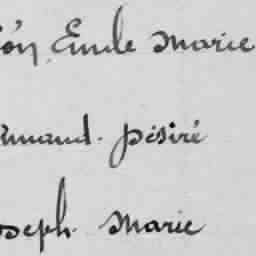 éon, Emile Marie
rmand. Désiré
oseph. Marie